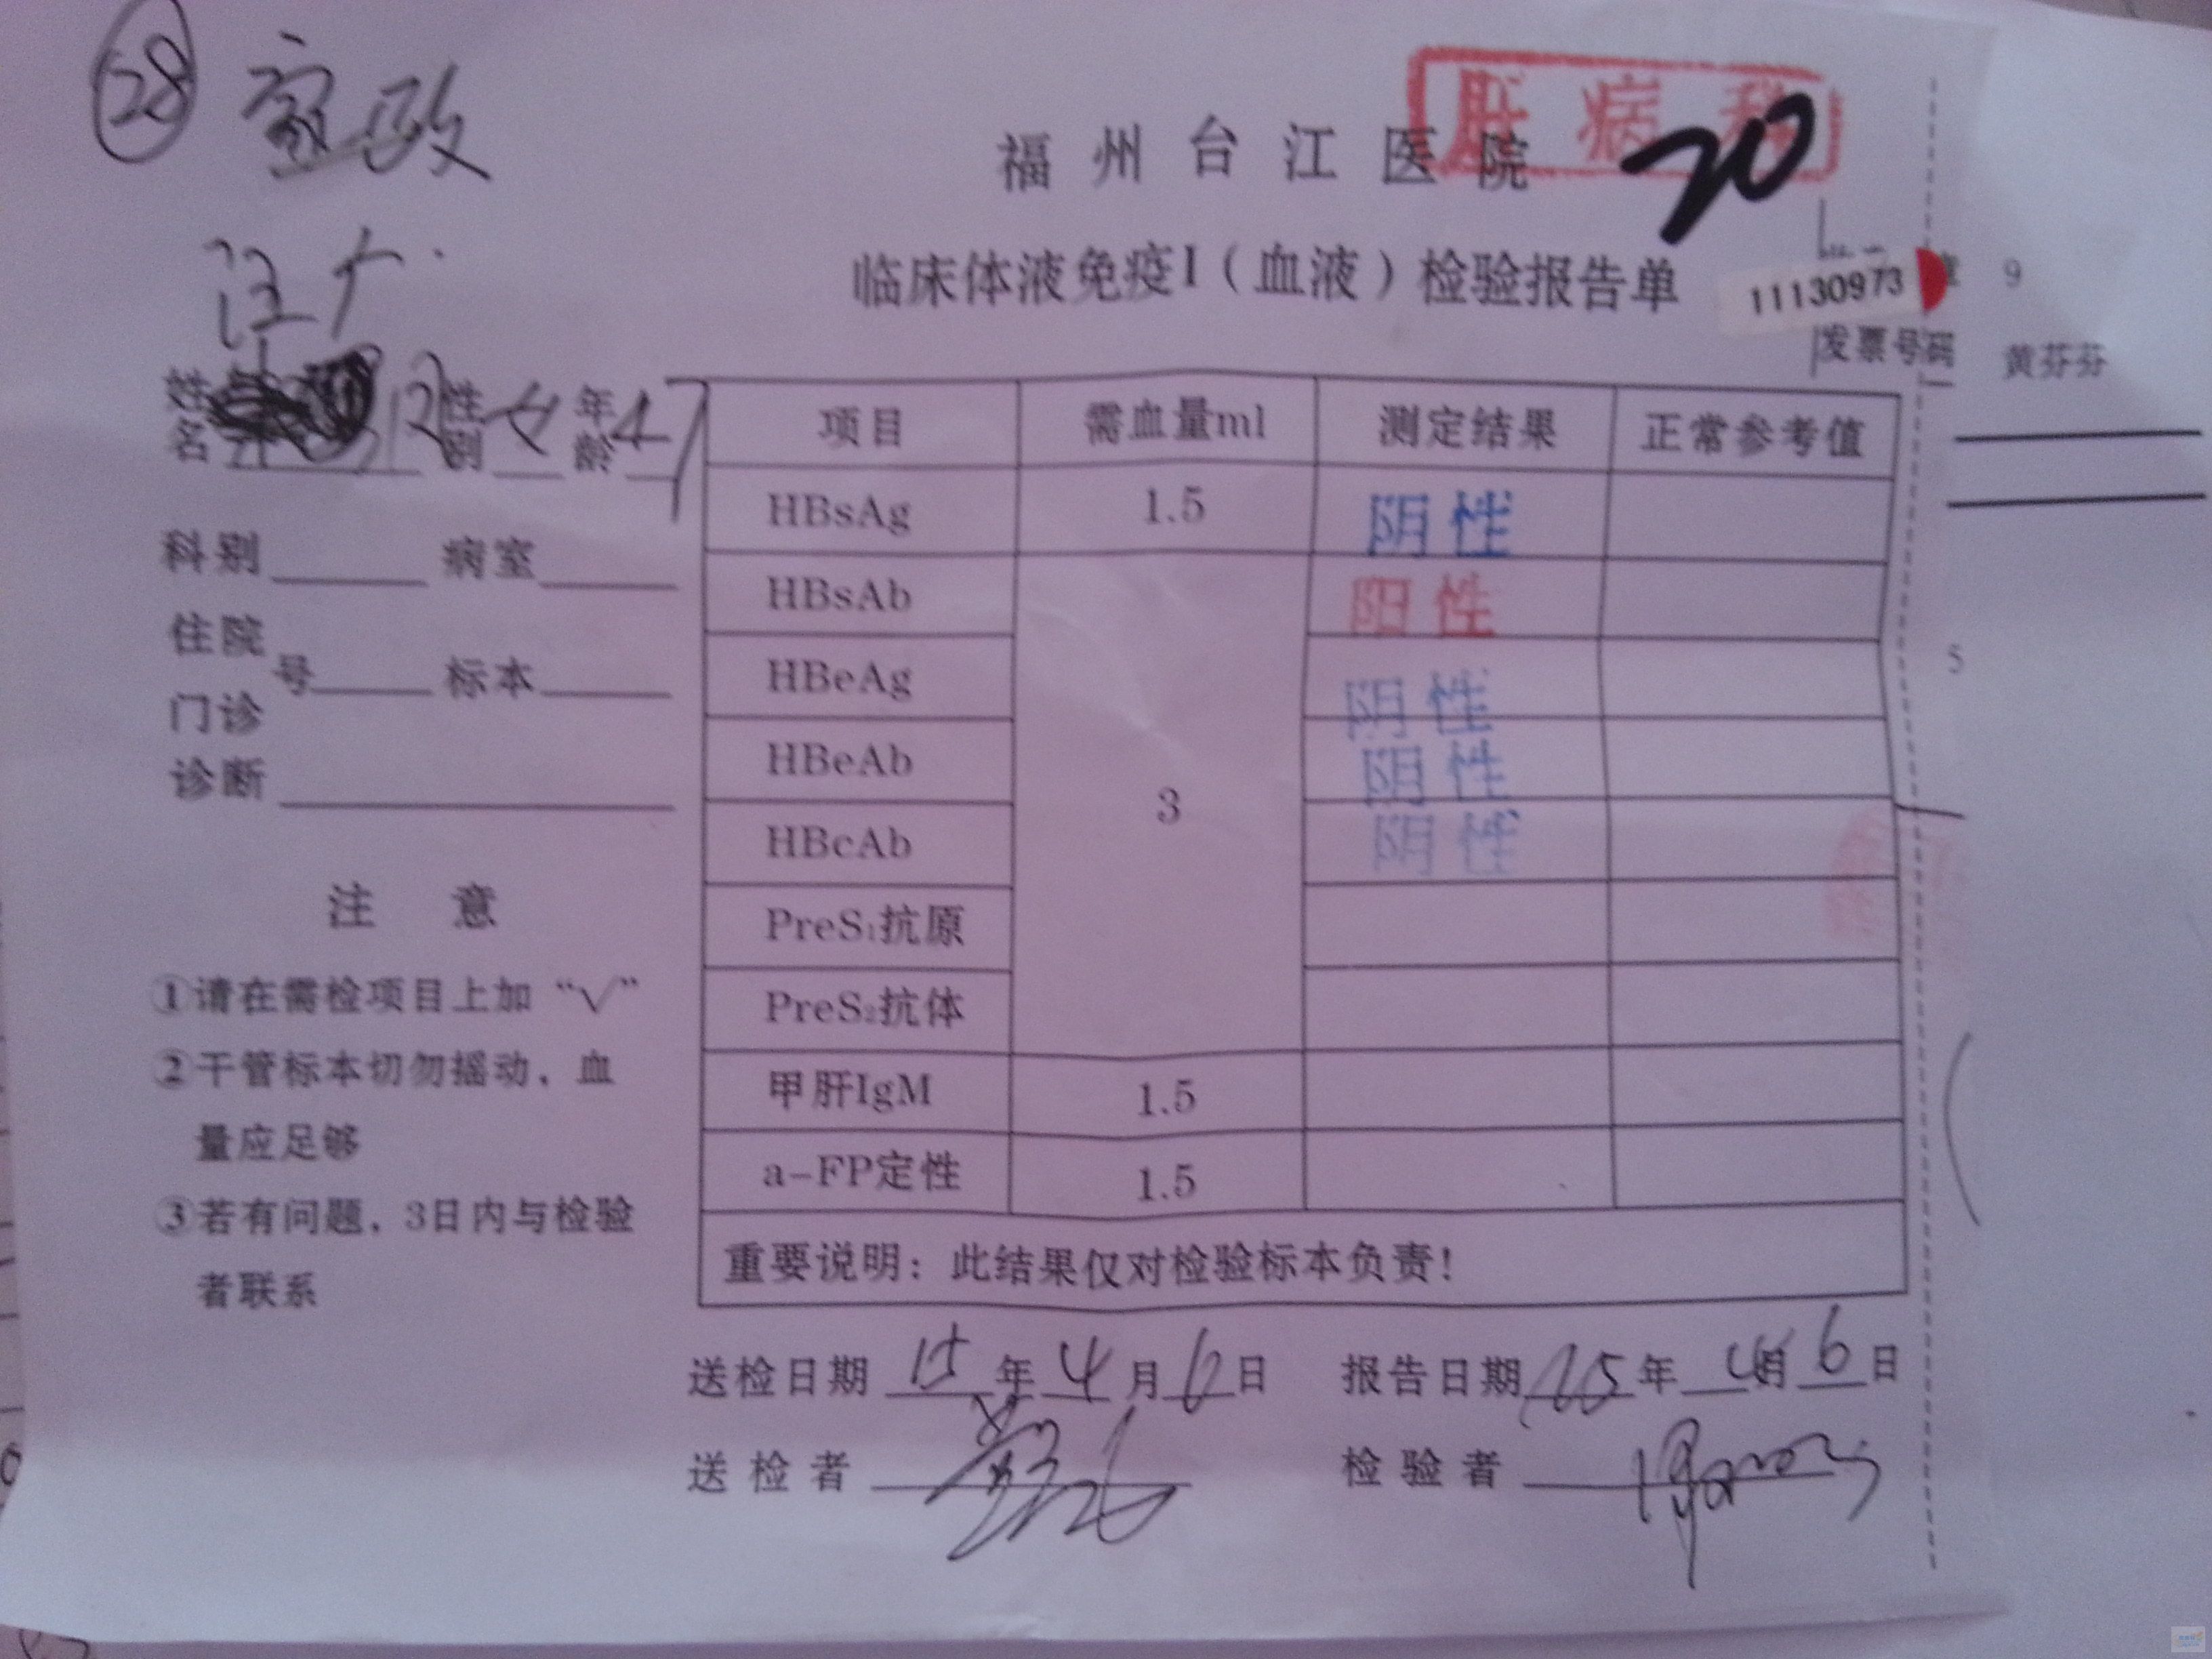 28 家政
肝病科
福州台江医院 20
汪
临床体液免疫I（血液）检验报告单
11130973 9
发票号码 黄芬芬
姓名 性别 女 年龄 47
项目 需血量ml 测定结果 正常参考值
HBsAg 1.5 阴性
HBsAb 阳性
HBeAg 阴性
HBeAb 阴性
HBcAb 阴性
3
PreS₁抗原
PreS₂抗体
甲肝IgM 1.5
a-FP定性 1.5
重要说明：此结果仅对检验标本负责！
科别 病室
住院
号 标本
门诊
诊断
5
注 意
①请在需检项目上加“√”
②干管标本切勿摇动，血
量应足够
③若有问题，3日内与检验
者联系
送检日期 15 年 4 月 6 日 报告日期 15 年 4 月 6 日
送检者 检验者